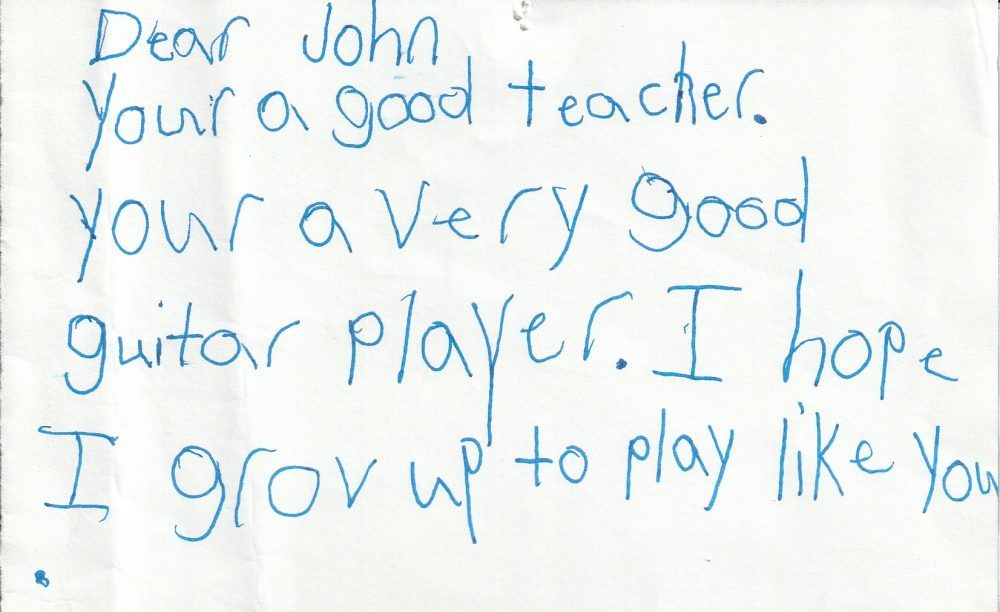 Dear John
Your a good teacher.
your a very good
guitar player. I hope
I grov up to play like you
.